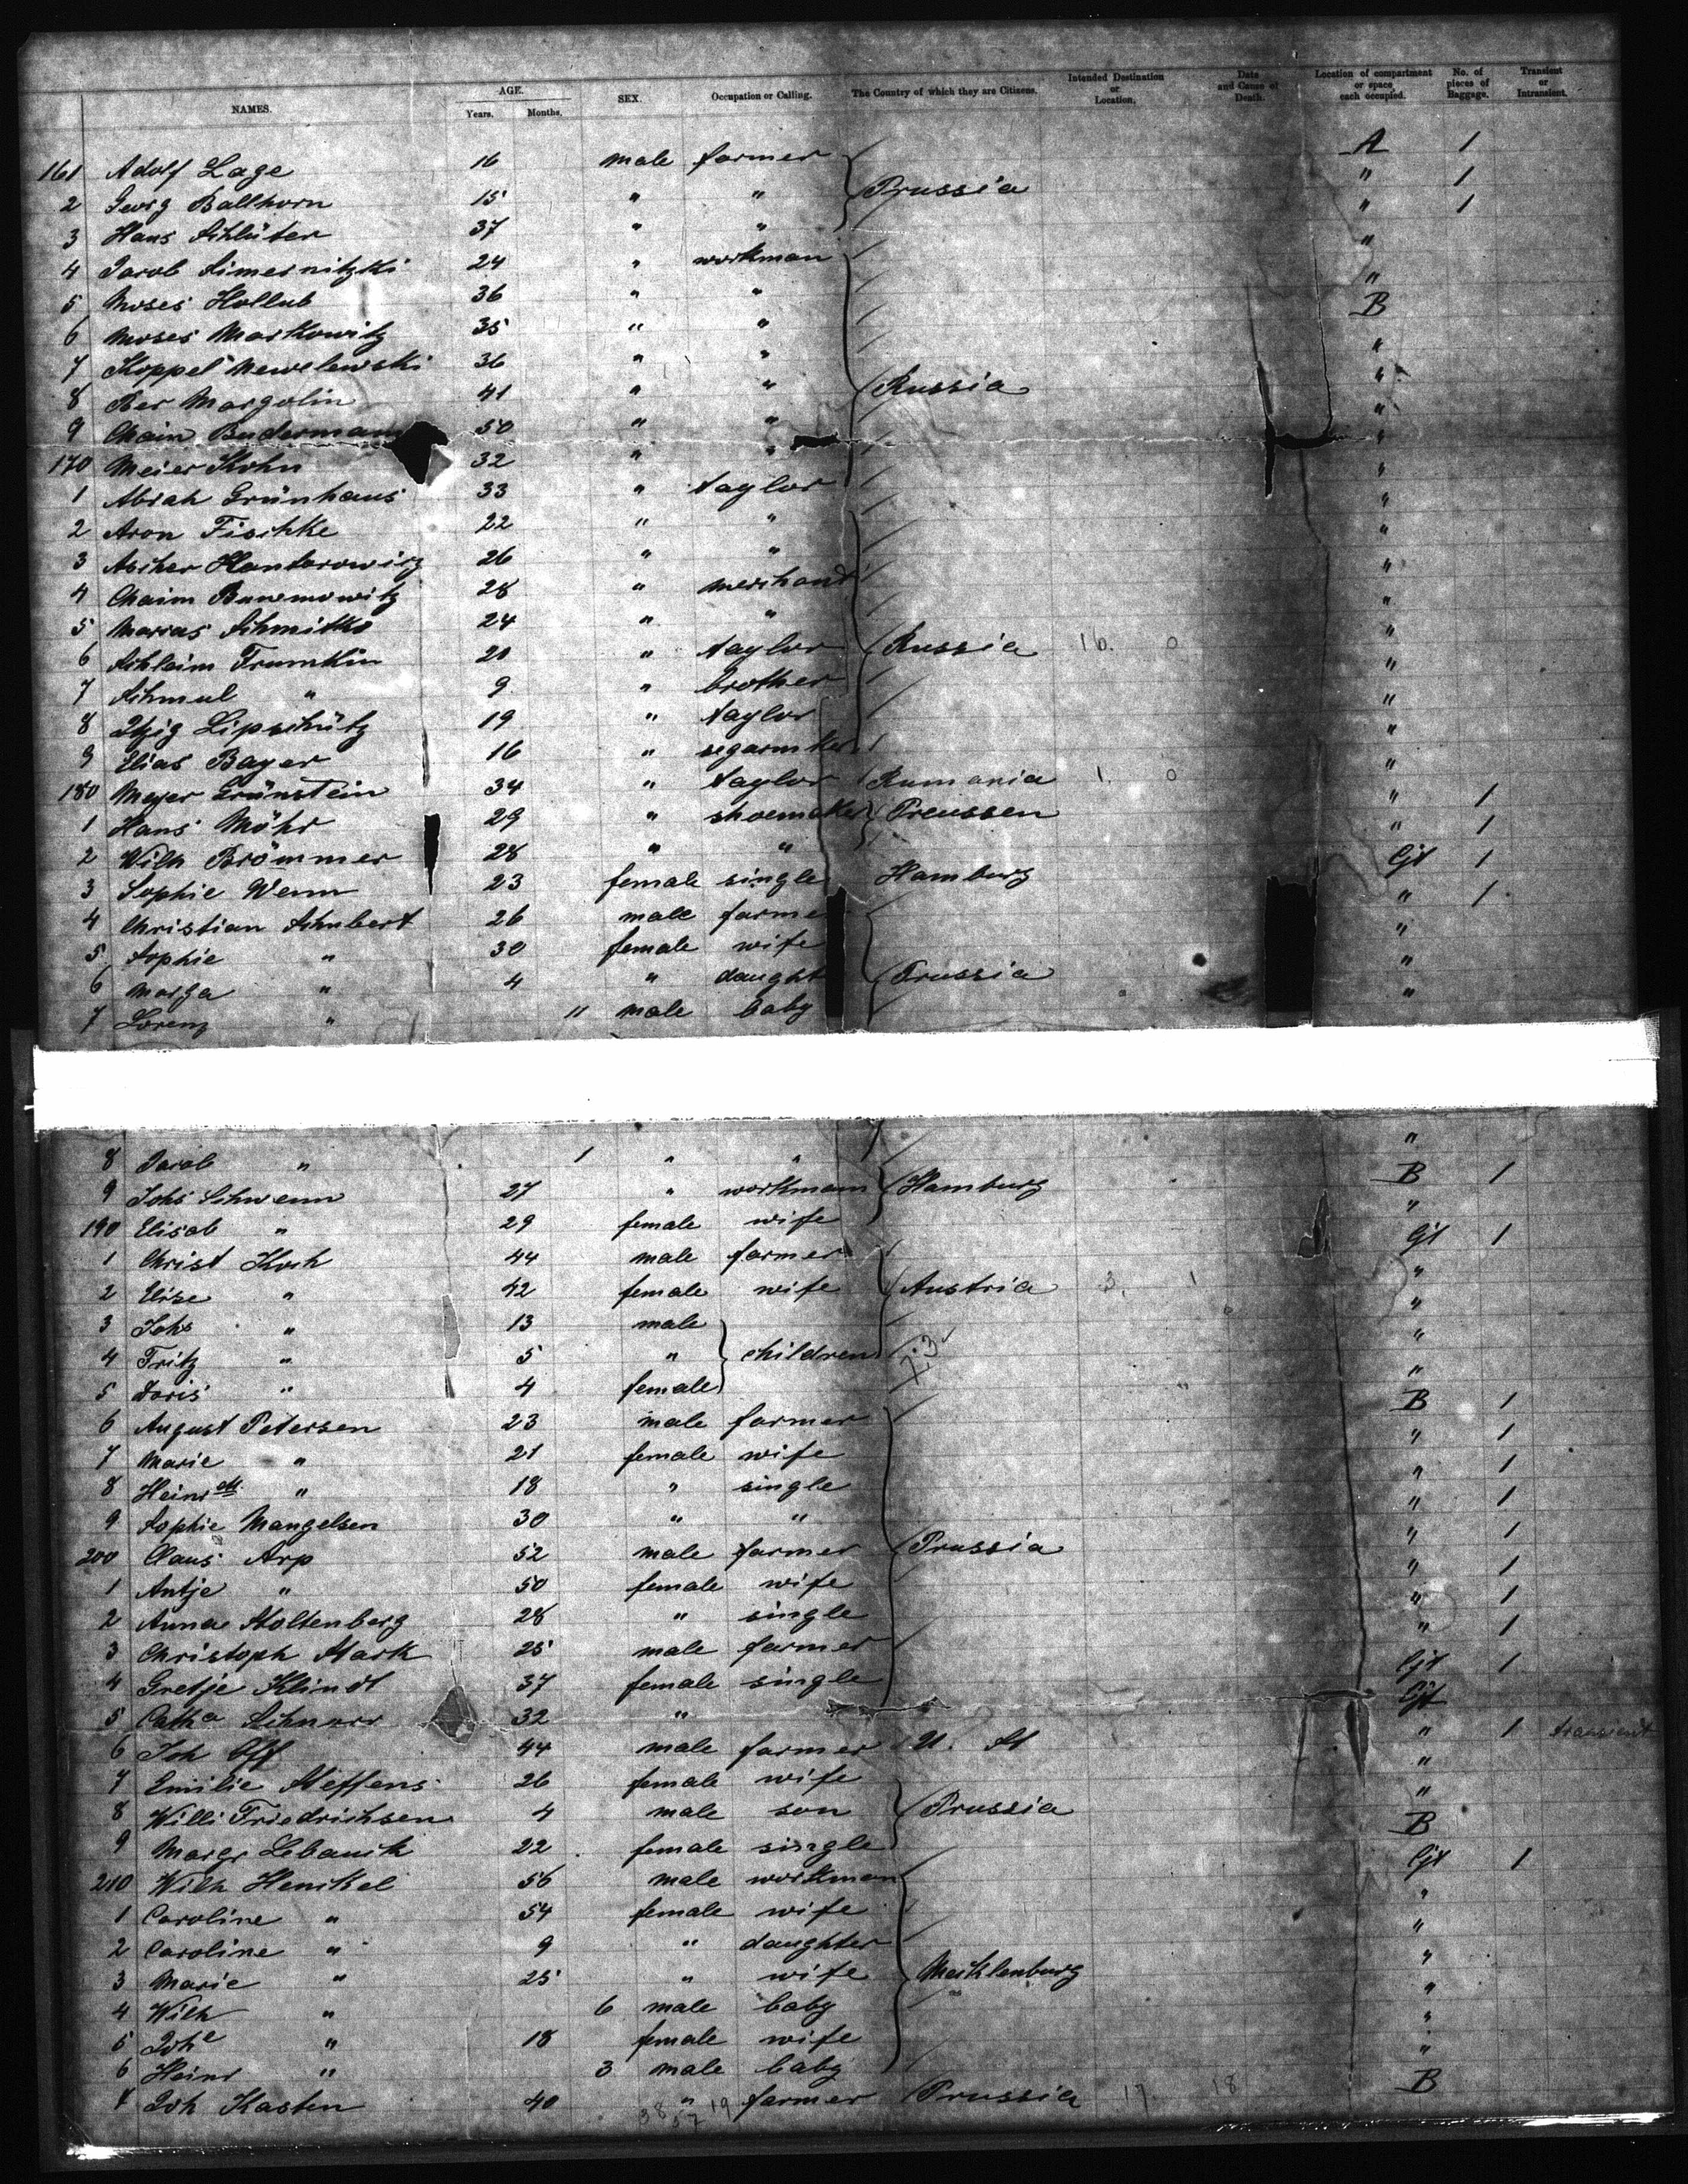 NAMES. AGE. Years. Months. SEX. Occupation or Calling. The Country of which they are Citizens. Intended Destination or Location. Date and Cause of Death. Location of compartment or space each occupied. No. of pieces of Baggage. Transient or Intransient.
161 Adolf Lage 16 male farmer A 1
2 Georg Ballhorn 15 " " Prussia " 1
3 Hans Schlüter 37 " " " 1
4 Jacob 24 " workman "
5 Moses Hollub 36 " " "
6 Moses Markowitz 35 " " B
7 Koppel Mewelewski 36 " " "
8 Ber Margolin 41 " " Russia "
9 Chaim 50 " " "
170 Meier Kohn 32 " " "
1 Abrah Grünhaus 33 " taylor "
2 Aron Fischke 22 " " "
3 Ascher 26 " " "
4 Chaim 28 " merchand "
5 Schmitko 24 " " "
6 Schlaim Frumkin 20 " taylor Russia 16. 0 "
7 Schmul " 9 " brother "
8 Itzig Lipschütz 19 " taylor "
9 Elias Bayer 16 " segarmker "
180 Meyer Grünstein 34 " taylor Rumania 1. 0 "
1 Hans Möhr 29 " shoemaker Preussen " 1
2 Wilh Brömmer 28 " " " 1
3 Sophie Wenn 23 female single Hamburg 1
4 Christian Schubert 26 male farme " 1
5 Sophie " 30 female wife "
6 Marga " 4 " daught Prussia "
7 Lorenz " 11 male baby "
8 Jacob " 1 " " "
9 Johs Schwenn 27 " workmann Hamburg B 1
190 Elisab " 29 female wife "
1 Christ Koch 44 male farmer 1
2 Elise " 42 female wife Austria 3. 1 "
3 Johs " 13 male "
4 Fritz " 5 " children "
5 Doris " 4 female "
6 August Petersen 23 male farmer B 1
7 Marie " 21 female wife " 1
8 Heinr " 18 " single " 1
9 Sophie Mangelsen 30 " " " 1
200 Claus Arp 52 male farmer Prussia " 1
1 Antje " 50 female wife " 1
2 Anna Stoltenberg 28 " single " 1
3 Christoph Stark 25 male farmer " 1
4 Gretje Klindt 37 female single 1
5 Catha Schnorr 32 "
6 Joh 44 male farmer U. St " 1 transient
7 Emilie Steffens 26 female wife "
8 Willi Friedrichsen 4 male son Prussia "
9 Margr 22 female single B
210 Wilh Henckel 56 male workman 1
1 Caroline " 54 female wife "
2 Caroline " 9 " daughter "
3 Marie " 25 " wife Mecklenburg "
4 Wilh " 6 male baby "
5 Johe " 18 female wife "
6 Heinr " 3 male baby "
7 Joh Kasten 40 " farmer Prussia 17. 18 B
38 57 19